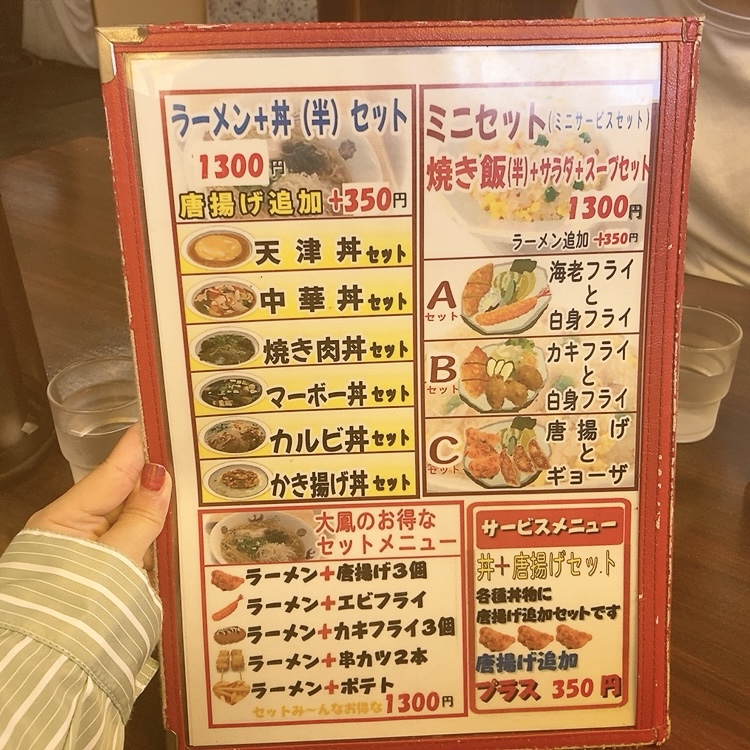 ラーメン+丼(半)セット
1300円
唐揚げ追加+350円
天津丼セット
中華丼セット
焼き肉丼セット
マーボー丼セット
カルビ丼セット
かき揚げ丼セット
ミニセット(ミニサービスセット)
焼き飯(半)+サラダ+スープセット
1300円
ラーメン追加+350円
Aセット
海老フライ
と
白身フライ
Bセット
カキフライ
と
白身フライ
Cセット
唐揚げ
と
ギョーザ
大鳳のお得な
セットメニュー
ラーメン+唐揚げ3個
ラーメン+エビフライ
ラーメン+カキフライ3個
ラーメン+串カツ2本
ラーメン+ポテト
セットみ〜んなお得な1300円
サービスメニュー
丼+唐揚げセット
各種丼物に
唐揚げ追加セットです
唐揚げ追加
プラス 350円